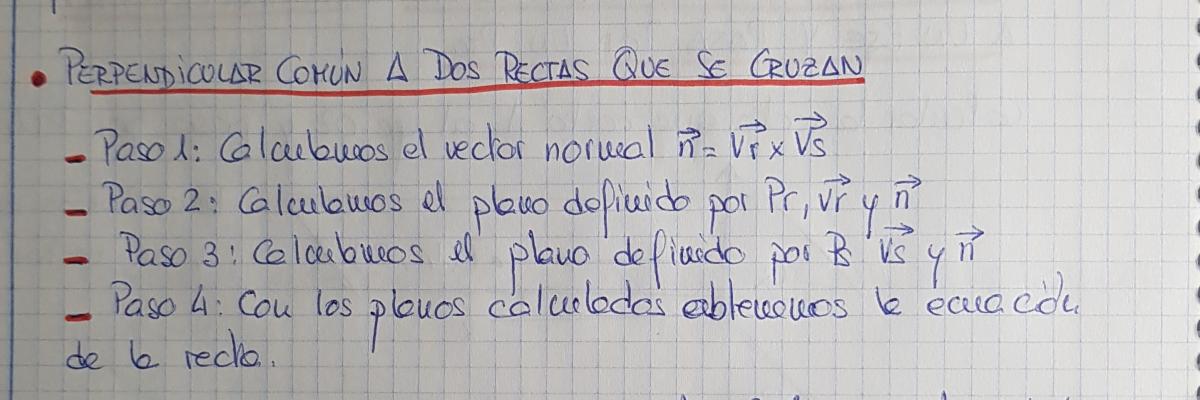 • PERPENDICULAR COMÚN A DOS RECTAS QUE SE CRUZAN
- Paso 1: Calculamos el vector normal n⃗ = v⃗r x v⃗s
- Paso 2: Calculamos el plano definido por Pr, v⃗r y n⃗
- Paso 3: Calculamos el plano definido por Ps v⃗s y n⃗
- Paso 4: Con los planos calculados obtenemos la ecuación
de la recta.